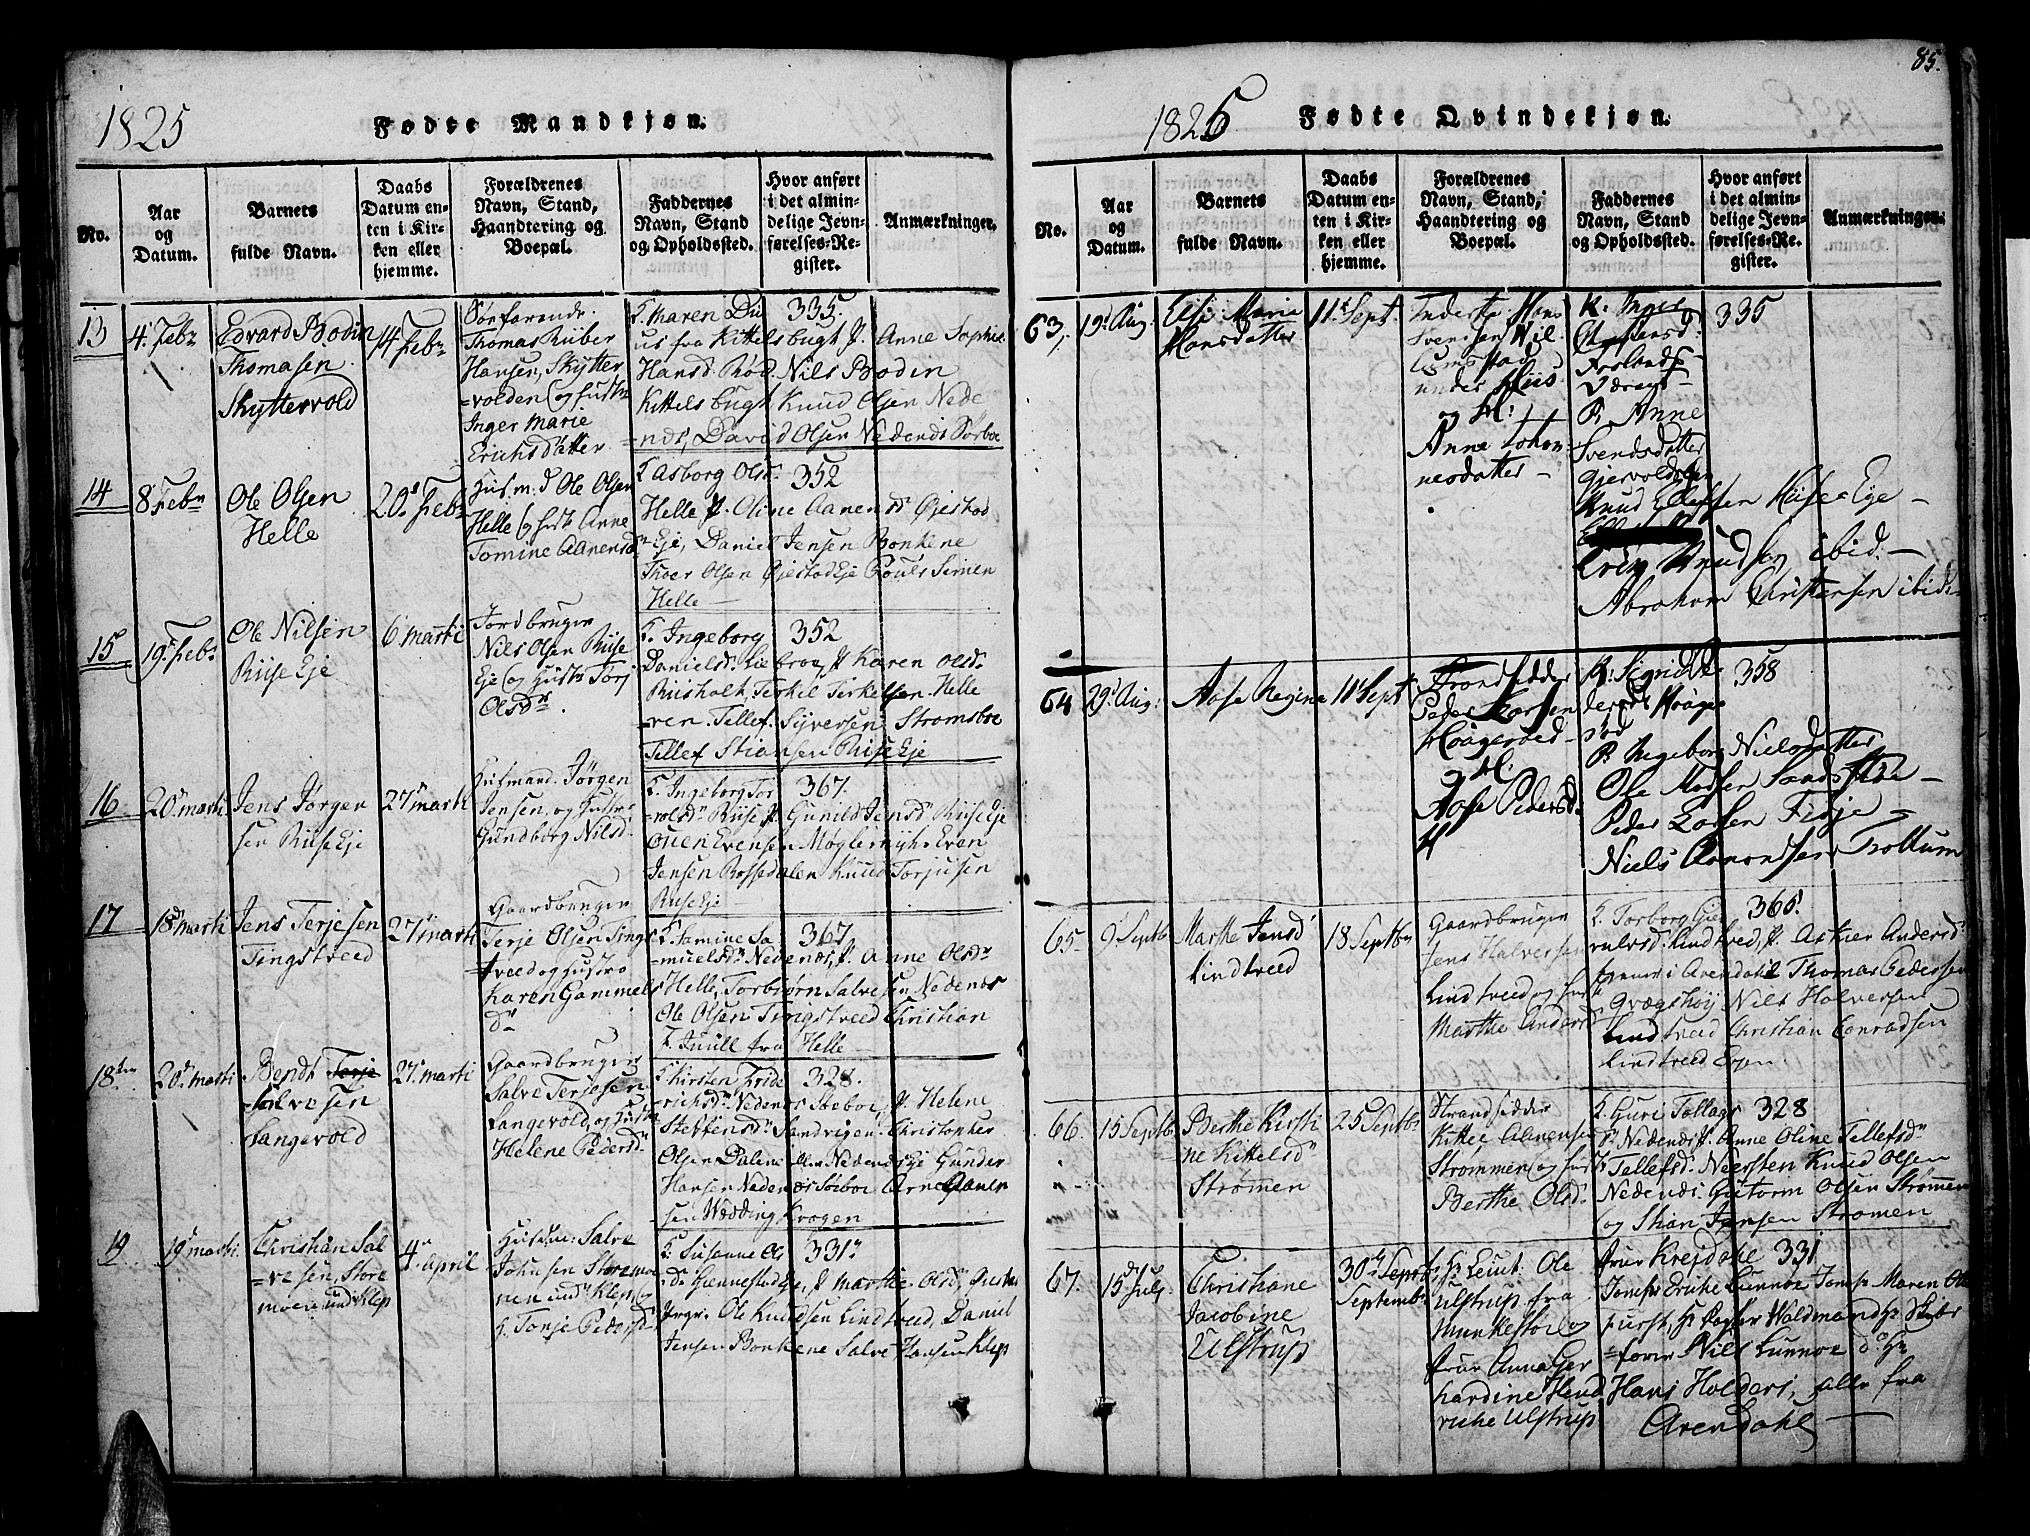 85.
1825
Fødte Mandkjøn.
No.
Aar og Datum.
Barnets fulde Navn.
Daabs Datum enten i Kirken eller hjemme.
Forældrenes Navn, Stand, Haandtering og Boepæl.
Faddernes Navn, Stand og Opholdssted.
Hvor anført i det almindelige Jevnførelses-Register.
Anmærkninger.
13
4. Febr
Edvard Bodin
Thomasen
Skyttervold
14 Febr
Sørfarende
Thomas Riiber
Hansen, Skytter
=volden og hustr
Inger Marie
Erichsdatter
335.
F. Maren Di
us fra Kittelsbugt P. Anne Sophie
Hansd. Röd Nils Bodin
Kittelsbugt Knud Olsen Nede
=nes, David Olsen Nedenes Sørboe
14
8 Febr
Ole Olsen
Helle
20 Febr
Huusm. Ole Olsen
Helle og hustr Anne
Tomine Aanensd
352
F. Asborg Olsd
Helle P. Oline Aanensd Øjestad
Eje, Daniel Jensen Bonkene
Thoer Olsen Øjestad Eje Pouls Simen
Helle
15
19 Febr
Ole Nilsen
Riise Eje
6 marti
Jordbruger
Nils Olsen Riise
Eje og hustr Torj
Olsdr
352
F. Ingeborg
Danielsd. Liebroe P. Karen Olsd.
Riisholt Terkil Terkelsen Helle
=ren. Tellef Syversen Stromsboe
Tellef Stiansen Riise Eje
16
20 marti
Jens Jørgen
sen Riise Eje
27 marti
Huusmand. Jørgen
Jensen, og Hustr
Gundborg Nilsd
367.
F. Ingeborg Tor
=volsd Riise P. Gunild Jensd Riise Eje
Ouen Evensen Møglemyhr Even
Jensen Rossedalen Knud Torjusen
Riise Eje
17
18 marti
Jens Terjesen
Tingstveed
27 marti
Gaardbruger
Terje Olsen Tings
tveed og hustro
Karen Gammels
dr
367.
F. Samine Sa
=muelsd Nedenes, P. Anne Olsdr
Helle, Torbjørn Salvesen Nedenes
Ole Olsen Tingstveed Christian
F. Juull fra Helle
18
20 marti
Bendt Terje
Salvesen
Langevold
27 marti
Gaardbruger
Salve Terjesen
Langevold, og hustr
Helene Pedersdr
328.
F. Kirsten Fride
=richsd Nedenes Søeboe, P. Helene
Steffensd Sandvigen. Christopher
Olsen Dalene Nedenes Eje Gunder
Hansen Nedenes Søeboe Arne Aanen
sen Wedding Kragen
19
19 marti
Christian Sal
=vesen, Store
moen und Klep
4. april
Husm: Salve
Johnsen Storemoe
nen und Klep, og
h. Tonje Pedersd
331.
F. Susanne Ols
d. Gjennestad Eje, P. Marthe Olsd,
Ole Knudsen Lindtveed, Daniel
Jensen Bonkene Salve Hansen Klep
1825
Fødte Qvindekjøn.
No.
Aar og Datum.
Barnets fulde Navn.
Daabs Datum enten i Kirken eller hjemme.
Forældrenes Navn, Stand, Haandtering og Boepæl.
Faddernes Navn, Stand og Opholdssted.
Hvor anført i det almindelige Jevnførelses-Register.
Anmærkninger.
63,
19 Aug.
Else Maria
Hansdatter
11 Sept.
Inderste Hans
Svendsen
under Hiis
og H:
Anne Johan
nesdatter
335
K. Inger
P. Anne
Svendsdatter
Gjervoldsøen
Knud Ellefsen Hiise Eje
Knudsen ibid.
Abraham Christensen ibid.
64
29 Aug:
Aase Regine
11 Sept
Strandsidder
Peder Larsen
Haagerød
og H.
Aase Pedersd.
358
K. Sigrid Pe
dersd. Haage
rød
P. Ingeborg Nielsdatter
Ole Madsen
Peder Larsen
Niels Amondsen Trottum
65
9 Septb
Marthe Jensd
Lindtveed
18 Septbr
Gaardbruger
Jens Halvorsen
Lindtveed og hust
Marthe Andersd
366.
F. Torborg Eje
vulsd. Lindtveed, P. Askier Andersd
tjener i Arendahl Thomas Pedersen
Grægshøy Nils Halversen
Lindtveid Christian Conradsen
Lindtveed
66.
15 Septb
Berthe Kirsti
ne Kittelsd
Strømen
25 Septbr
Strandsidder
Kittel Aanensen
Strømmen og hust
Berthe Olsd.
328
F. Guri Tallags
d. Nedenes P. Anne Oline Tellefsdr
Tellefsd. Neersten Knud Olsen
Nedenes. Gutorm Olsen Strømmen
og Stian Jensen Stromen
67.
15 July
Christiane
Jacobine
Ulstrup
30 Septb
Septembr
Hr Leiut. Ole
Ulstrup fra
Munkestor og
Frue Anna Ger
hardine Hend
riche Ulstrup
331
Frue Krejdahl
Lunnoe Jomfr Maren Ole
Hr Waldmand
Nils Lunnoe
Hans Holders, alle fra
Arendahl